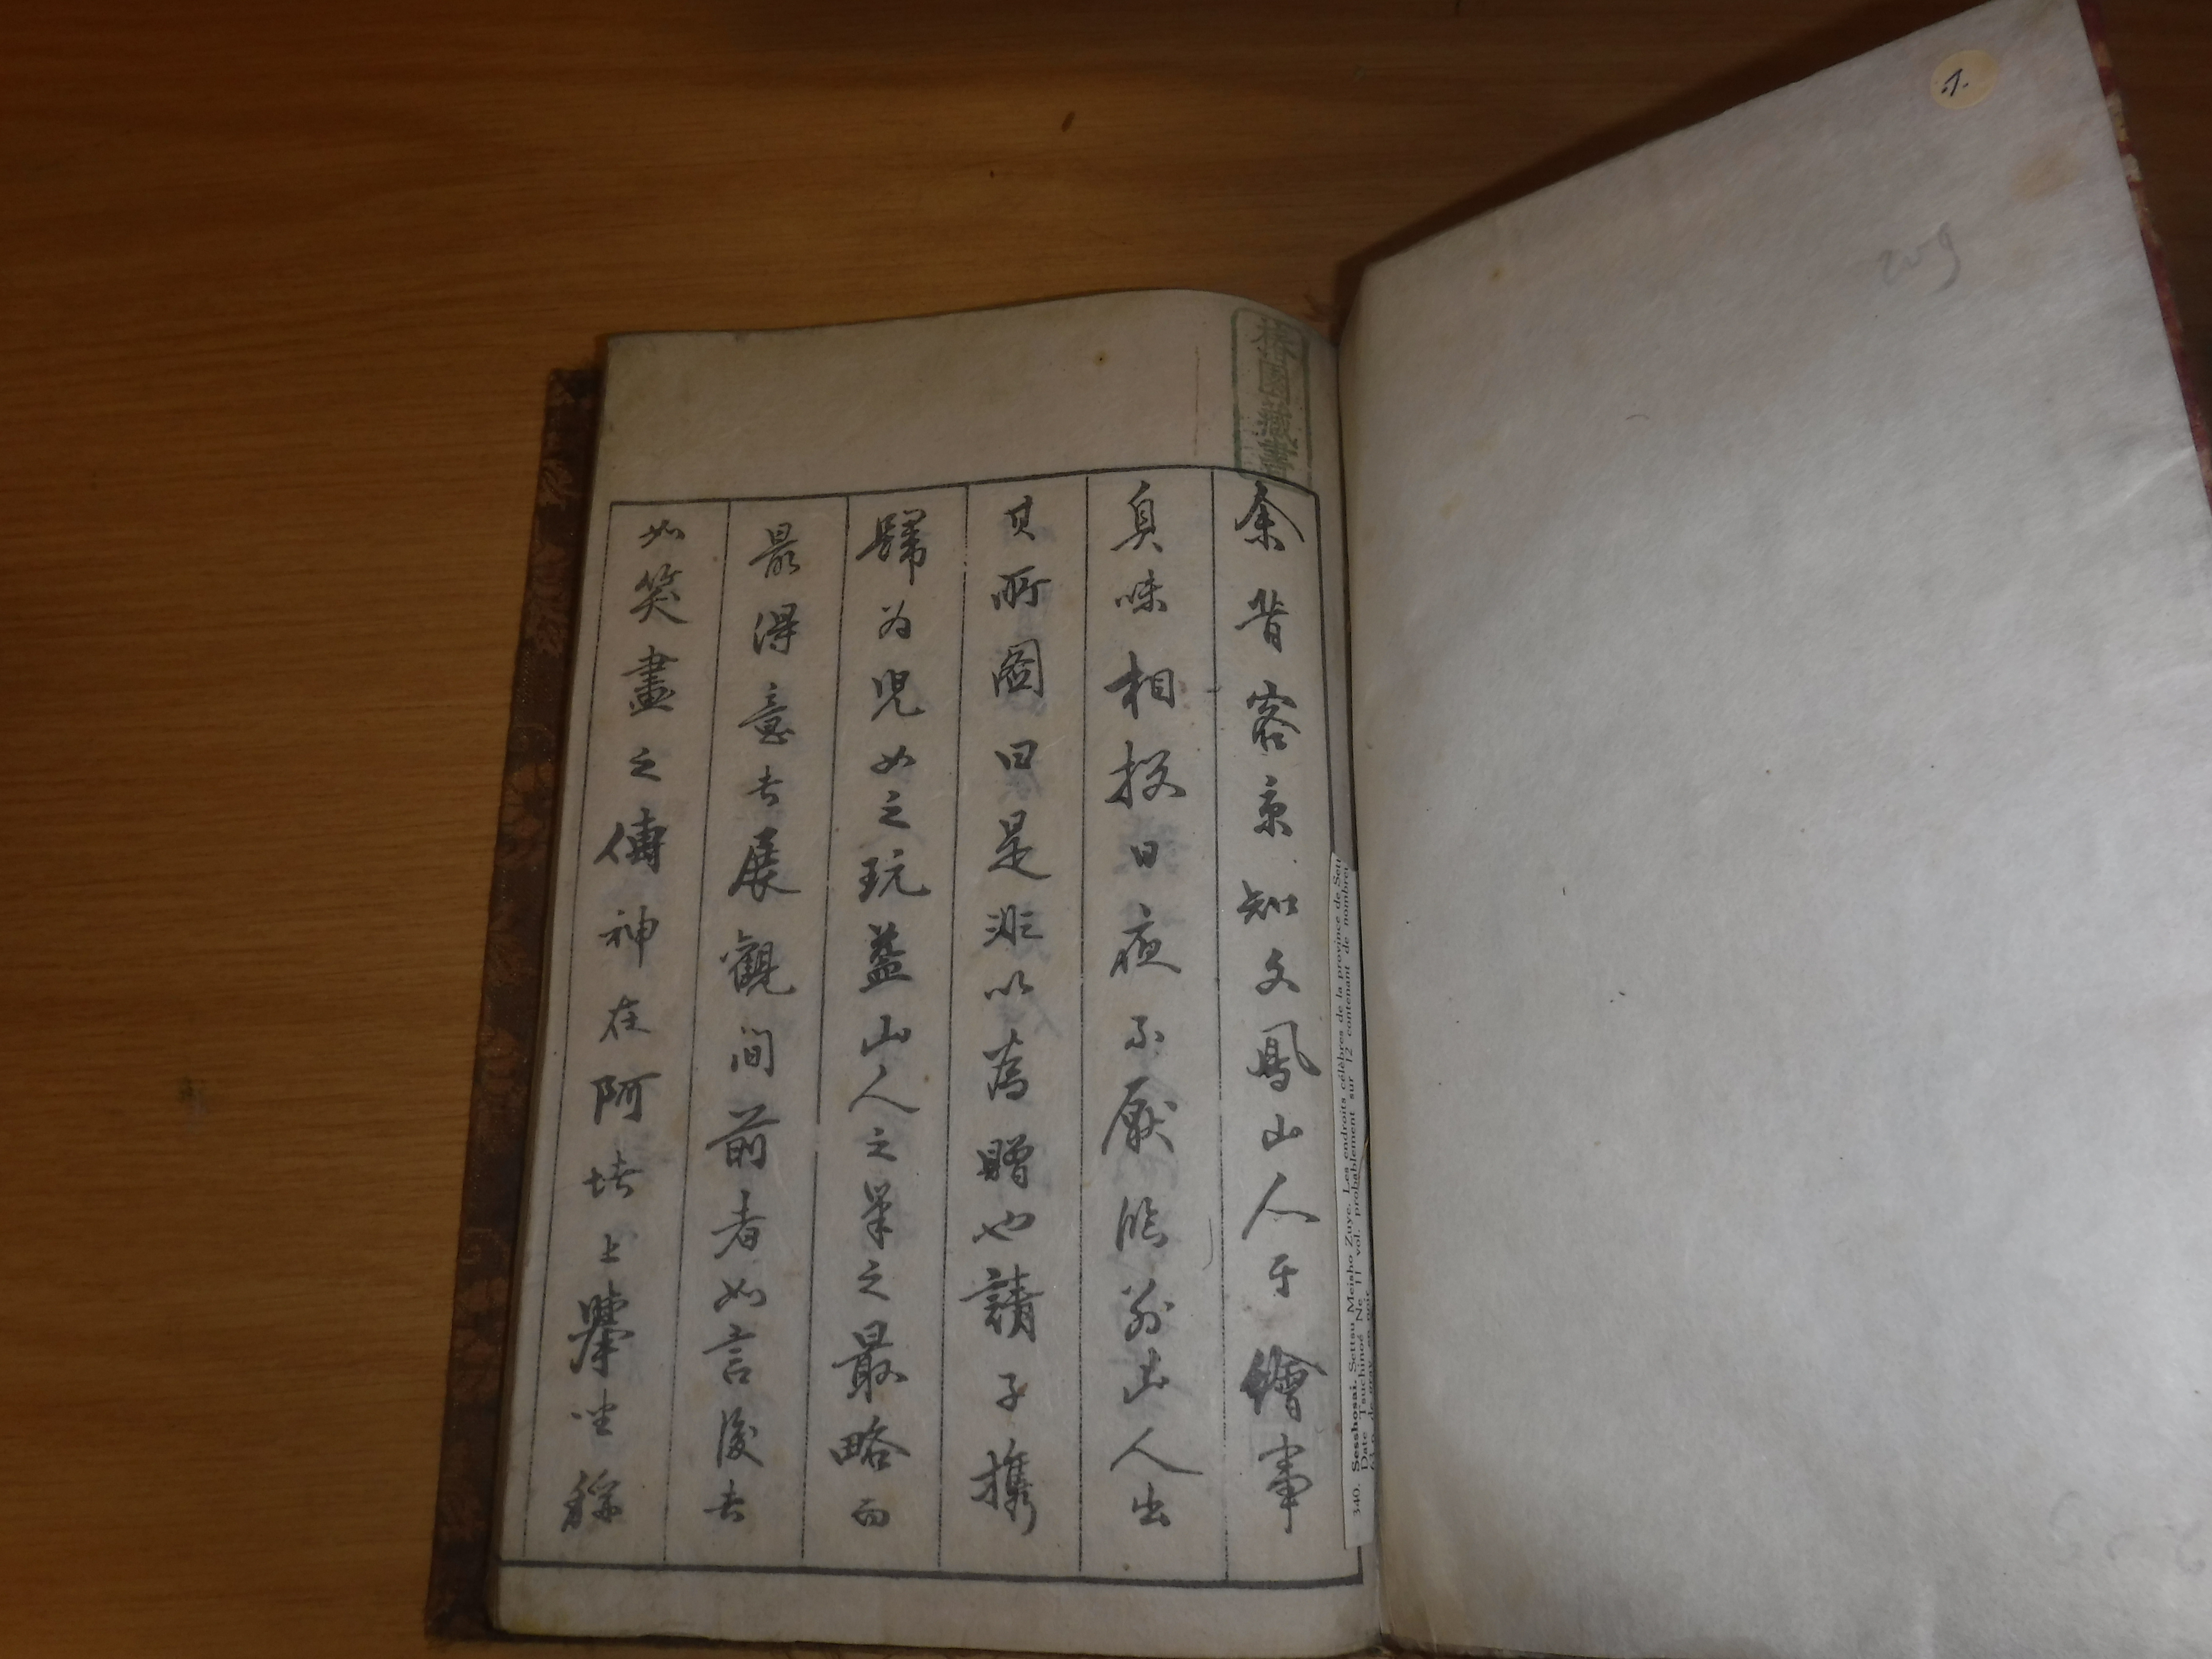 椿園藏書
余昔客京知文鳳山人于繪事
臭味相投日夜不厭臨別山人出
其所圖曰是非以為贈也請子携
歸為兒女之玩蓋山人之筆之最略而
最得意者展觀間前者如言後者
如笑畫之傳神在阿堵上擧坐稱
340. Sessbosai. Settsu Meisho Zuye. Les endroits célèbres de la province de Set
Date Tsuchinoé Ne 11 vol. probablement sur 12 contenant de nombre
209